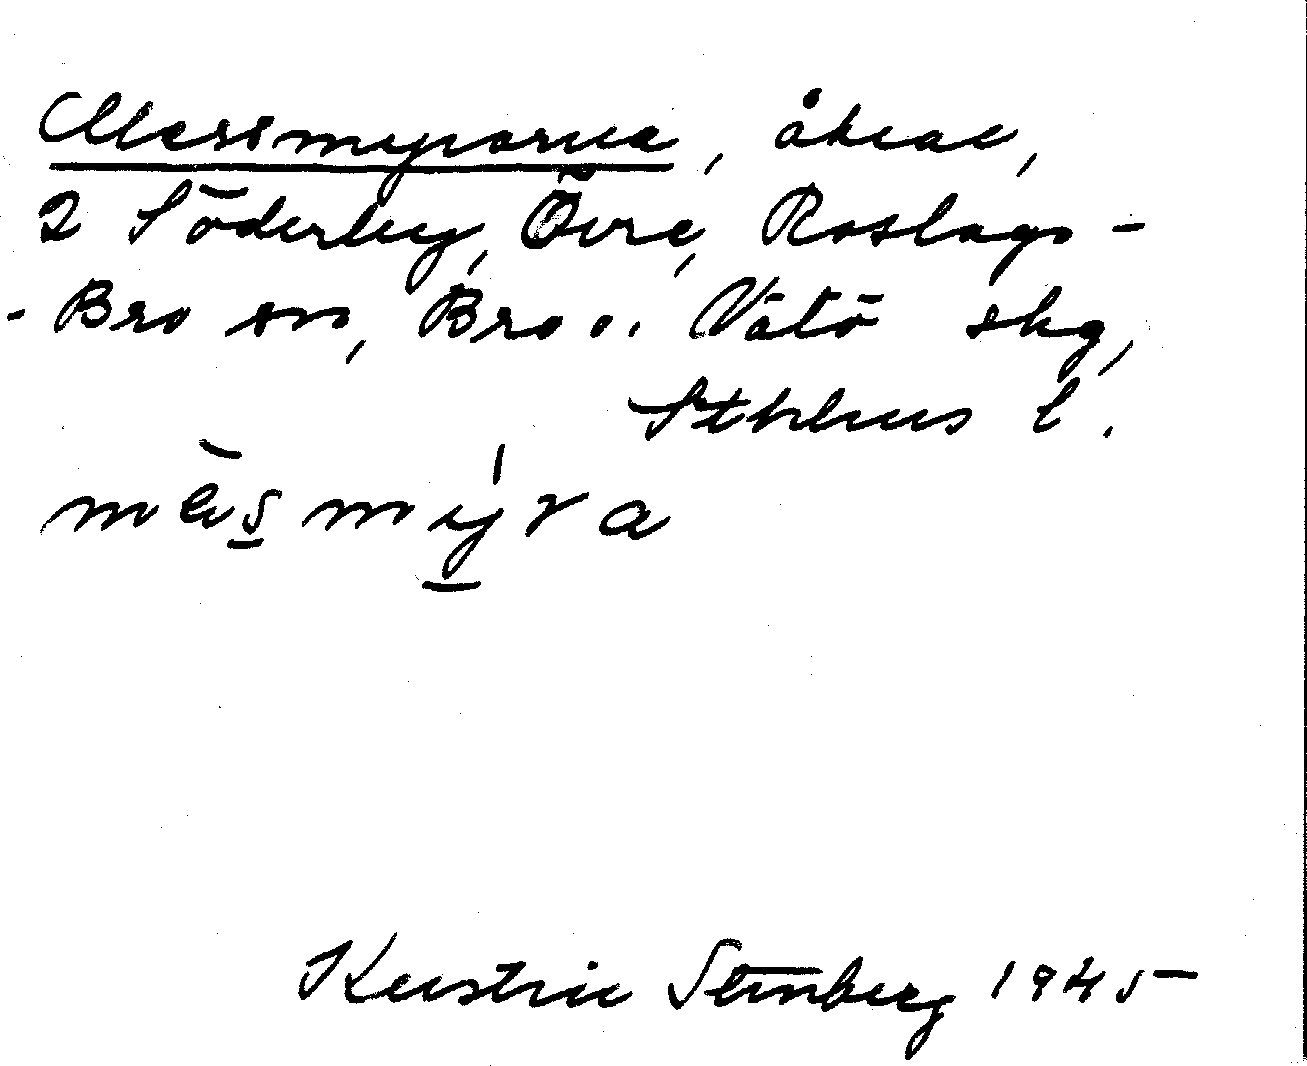 Messmyrarna, åkrar,
2 Söderby, Övre, Roslags-
-Bro sn, Bro o. Vätö skg,
Sthlms l.
mäsmyra
Kerstin Stenberg 1945